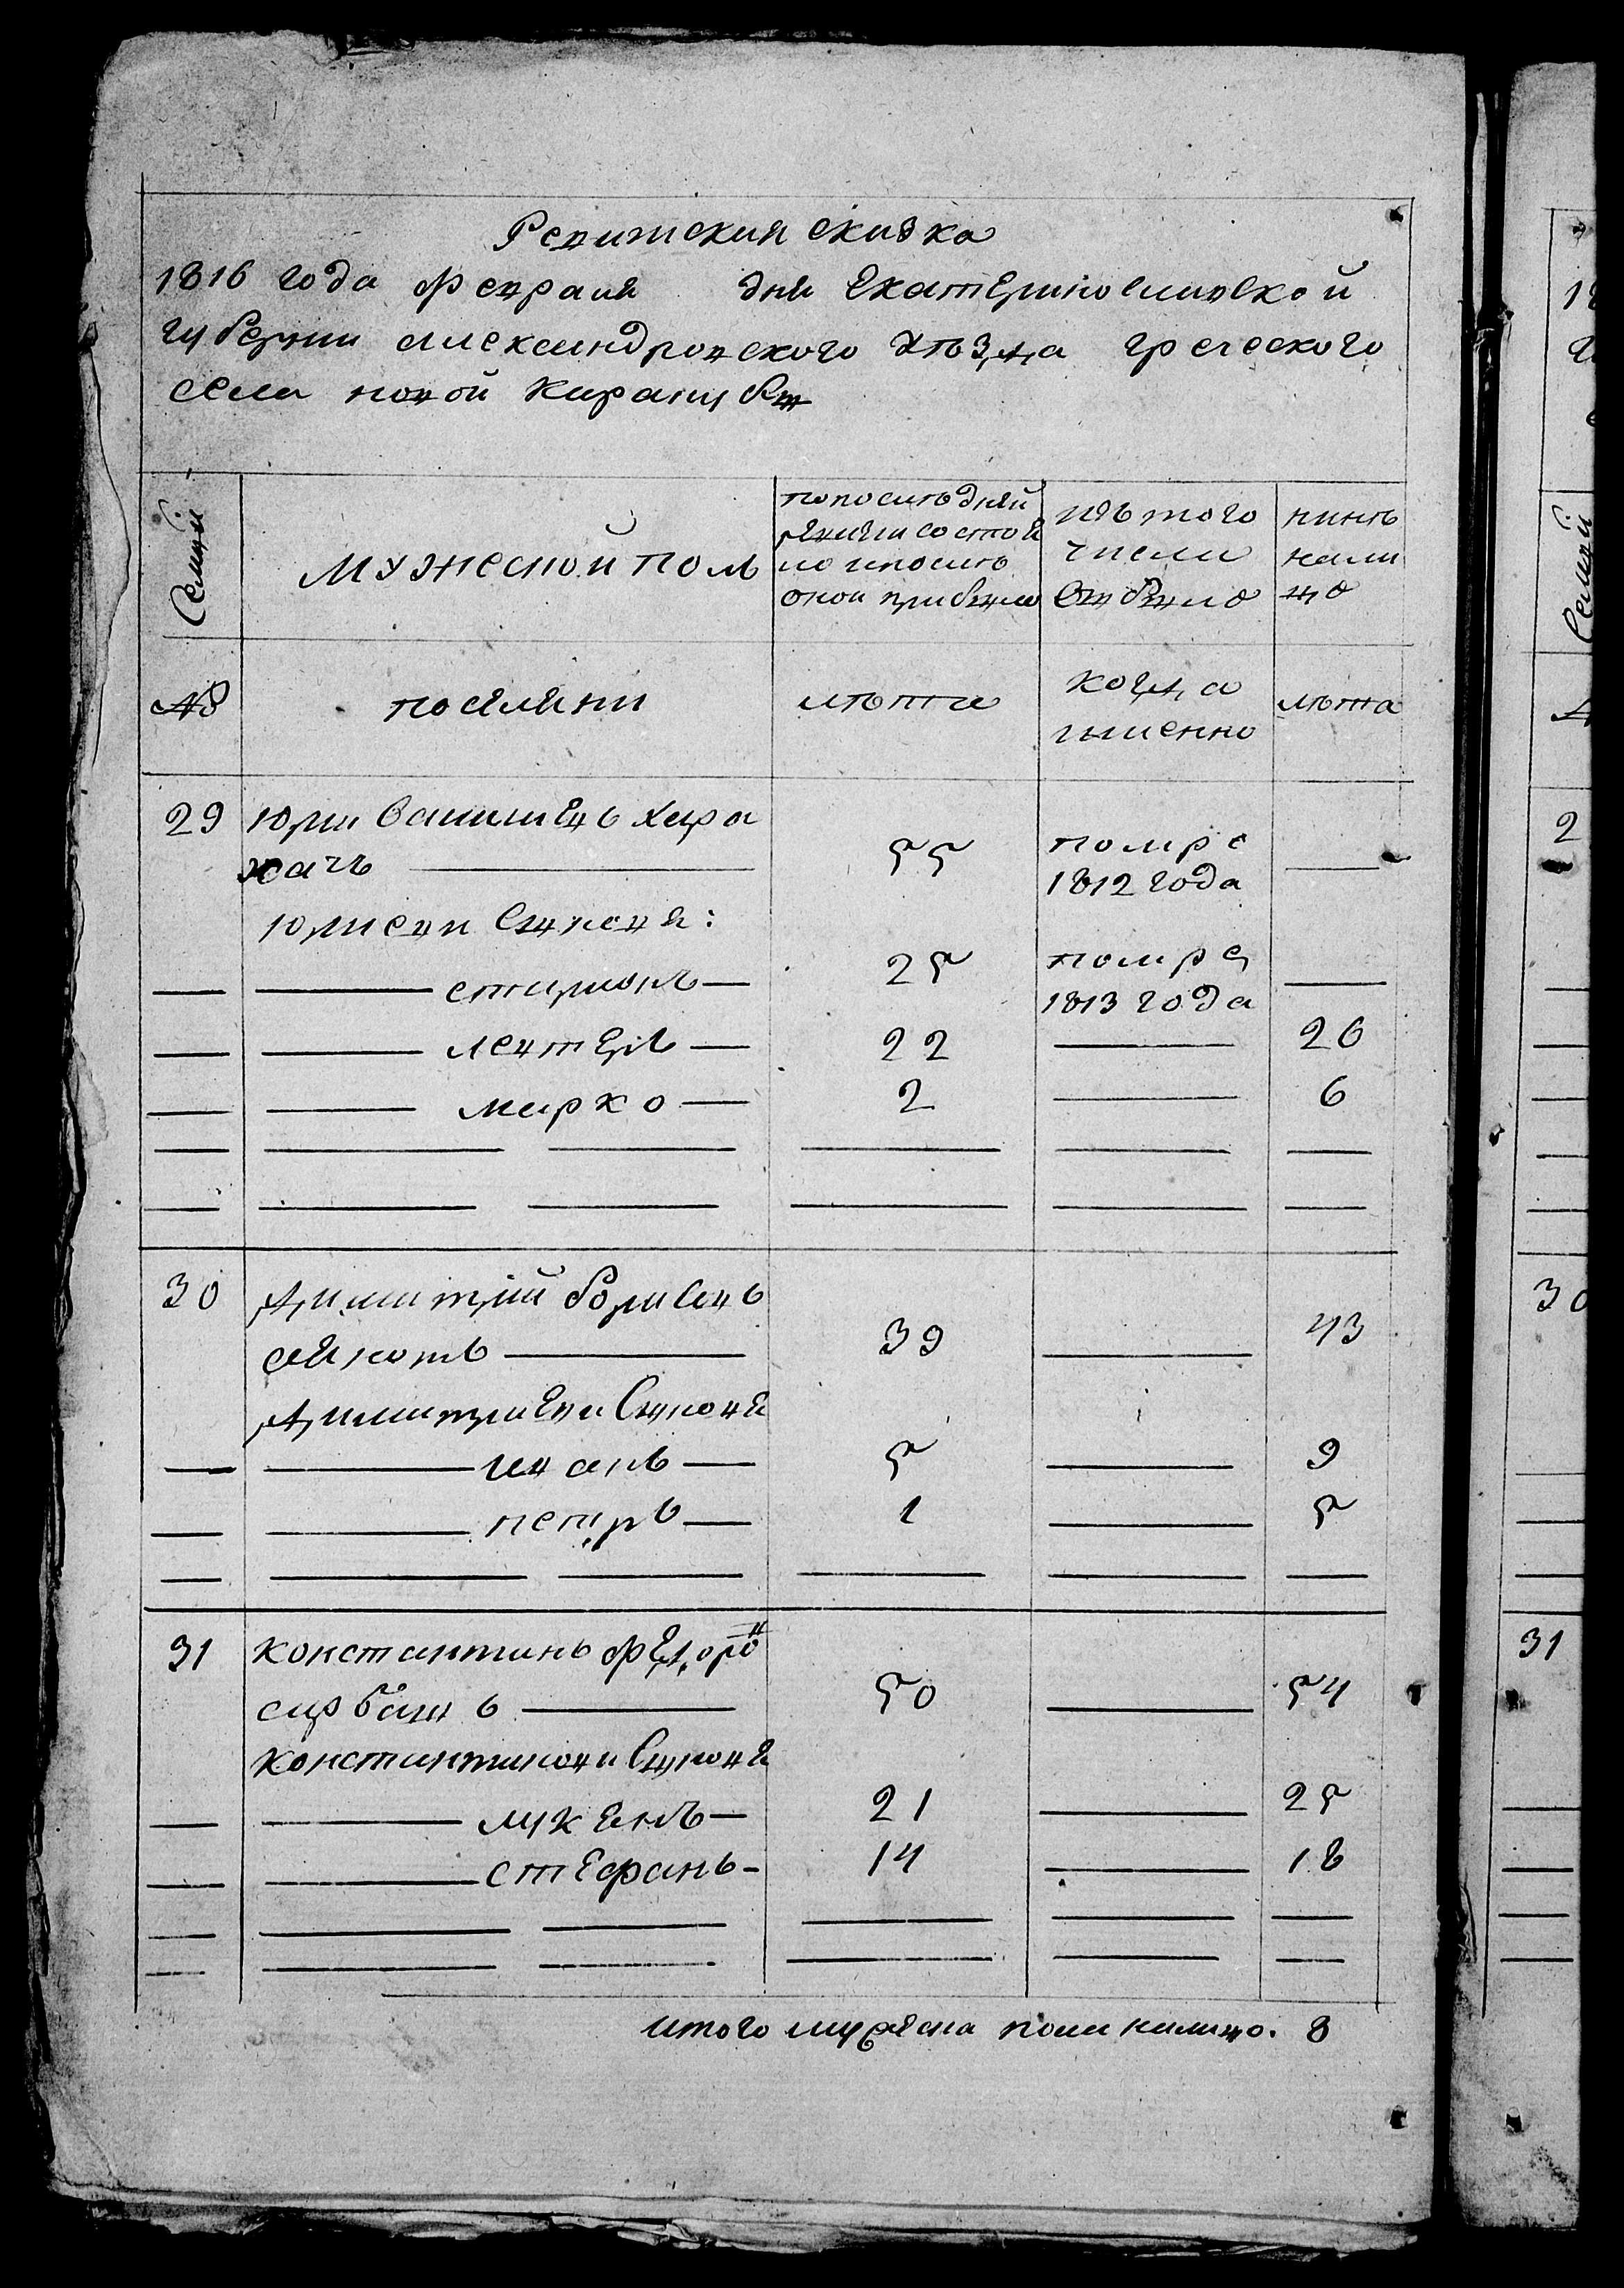 Ревижская скаска
1816 года февраля дня Екатеринославской
губернии александровского уѣзда греческого
села новой каракубы
Семьи
мужеской полъ
попослѣдней
ревизіи состоя
ло ипослѣ
оной прибыло
изъ того
числа
выбыло
нинѣ
нали
цо
№
поселяни
лѣта
когда
именно
лѣта
29 юрии василиевъ хара
хачъ 55 помре
1812 года
юриеви сынова:
спиридонъ 25 помре
1813 года
левтеръ 22 26
марко 2 6
30 димитрий борисовъ
39 43
димитриеви сынове
иванъ 5 9
петръ 1 5
31 константинъ федоров
50 54
константинови сынове
лукянъ 21 25
стефанъ 14 18
итого мужеска пола налицо. 8
18
Семьи
2
30
31